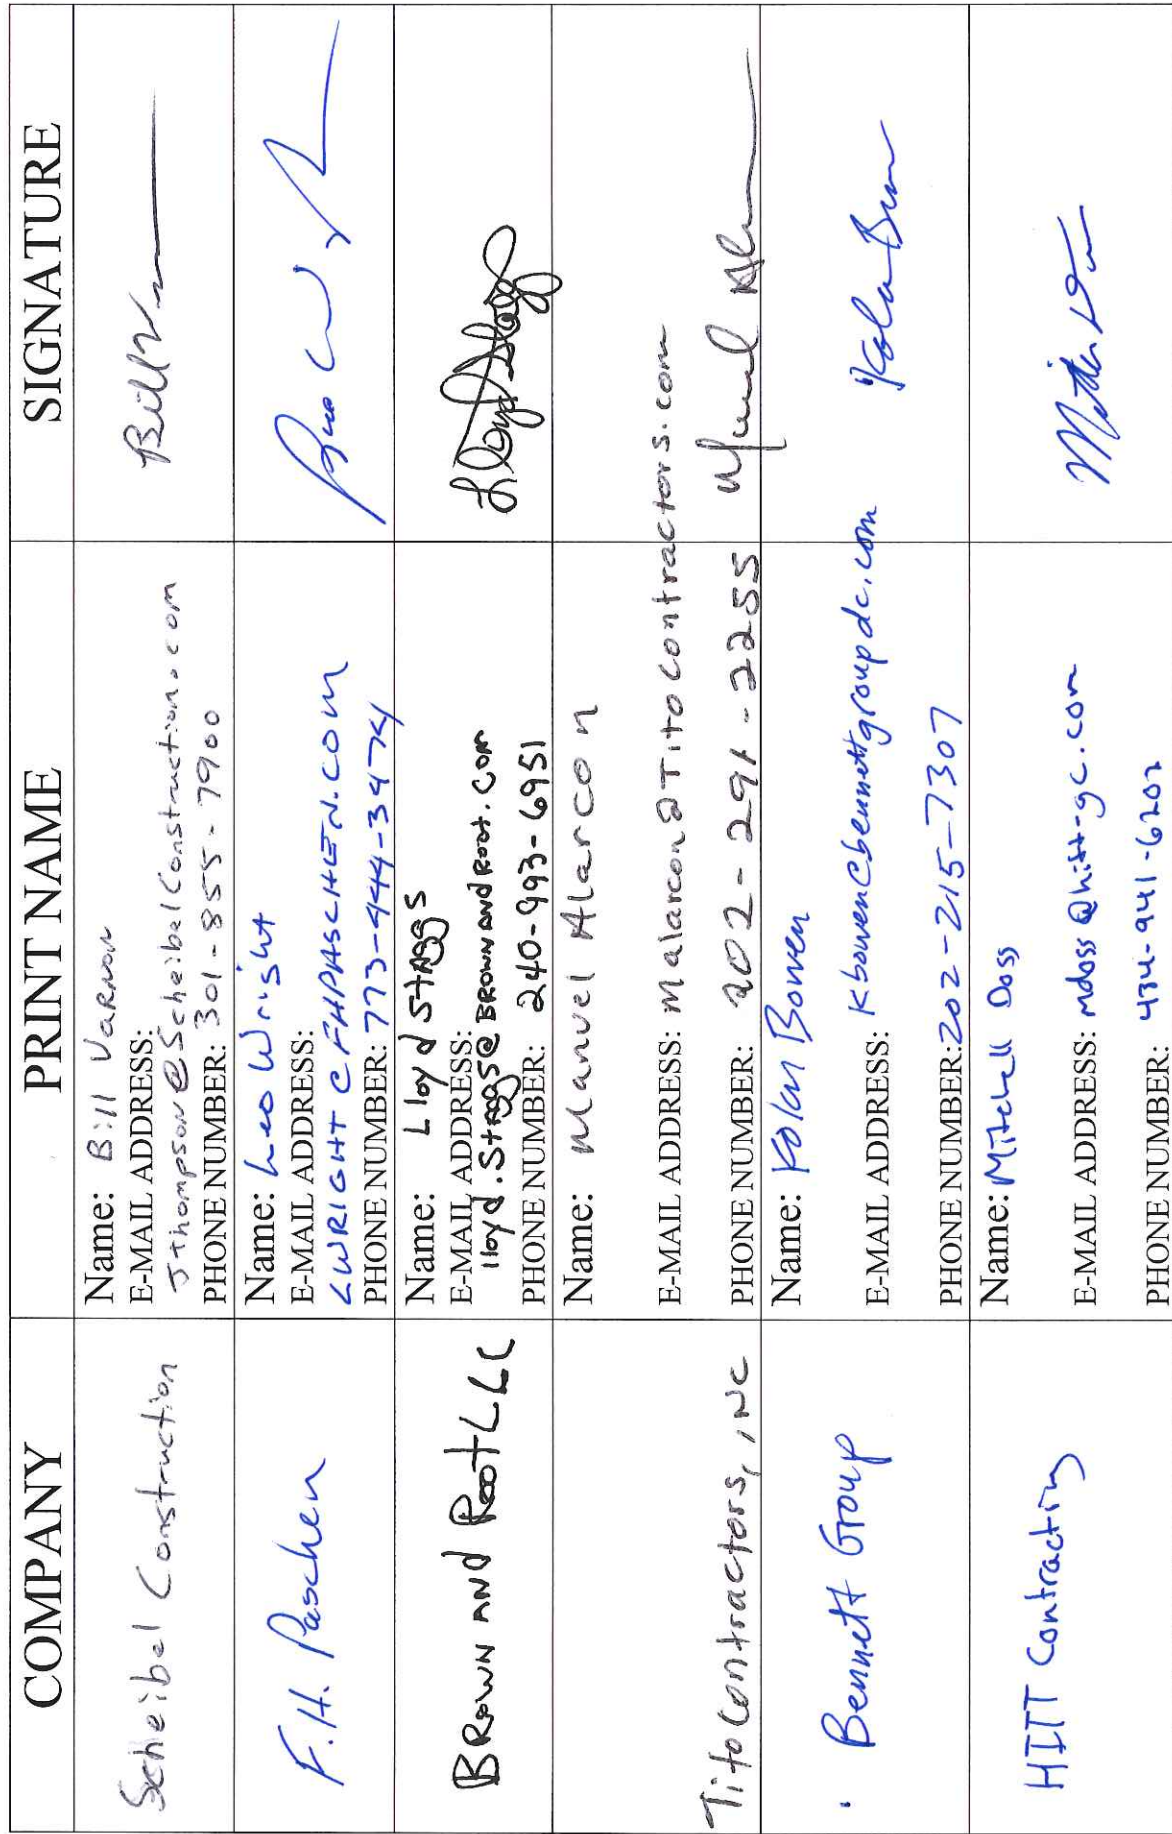 COMPANY
PRINT NAME
SIGNATURE
Scheibel Construction
Name: Bill Varnon
E-MAIL ADDRESS:
Jthompson@ScheibelConstruction.com
PHONE NUMBER: 301-855-7900
Bill V
F.H. Paschen
Name: Leo Wright
E-MAIL ADDRESS:
LWRIGHT@FHPASCHEN.COM
PHONE NUMBER: 773-444-3474
BROWN AND ROOT LLC
Name: Lloyd Staggs
E-MAIL ADDRESS:
lloyd.Staggs@BROWNANDROOT.COM
PHONE NUMBER: 240-993-6951
Lloyd Staggs
Tito Contractors, INC
Name: Manuel Alarcon
E-MAIL ADDRESS: malarcon@Titocontractors.com
PHONE NUMBER: 202-291-2255
Bennett Group
Name: Kolan Bowen
E-MAIL ADDRESS: Kbowen@bennettgroupdc.com
PHONE NUMBER: 202-215-7307
HITT Contracting
Name: Mitchell Doss
E-MAIL ADDRESS: mdoss@hitt-gc.com
PHONE NUMBER: 434-941-6202